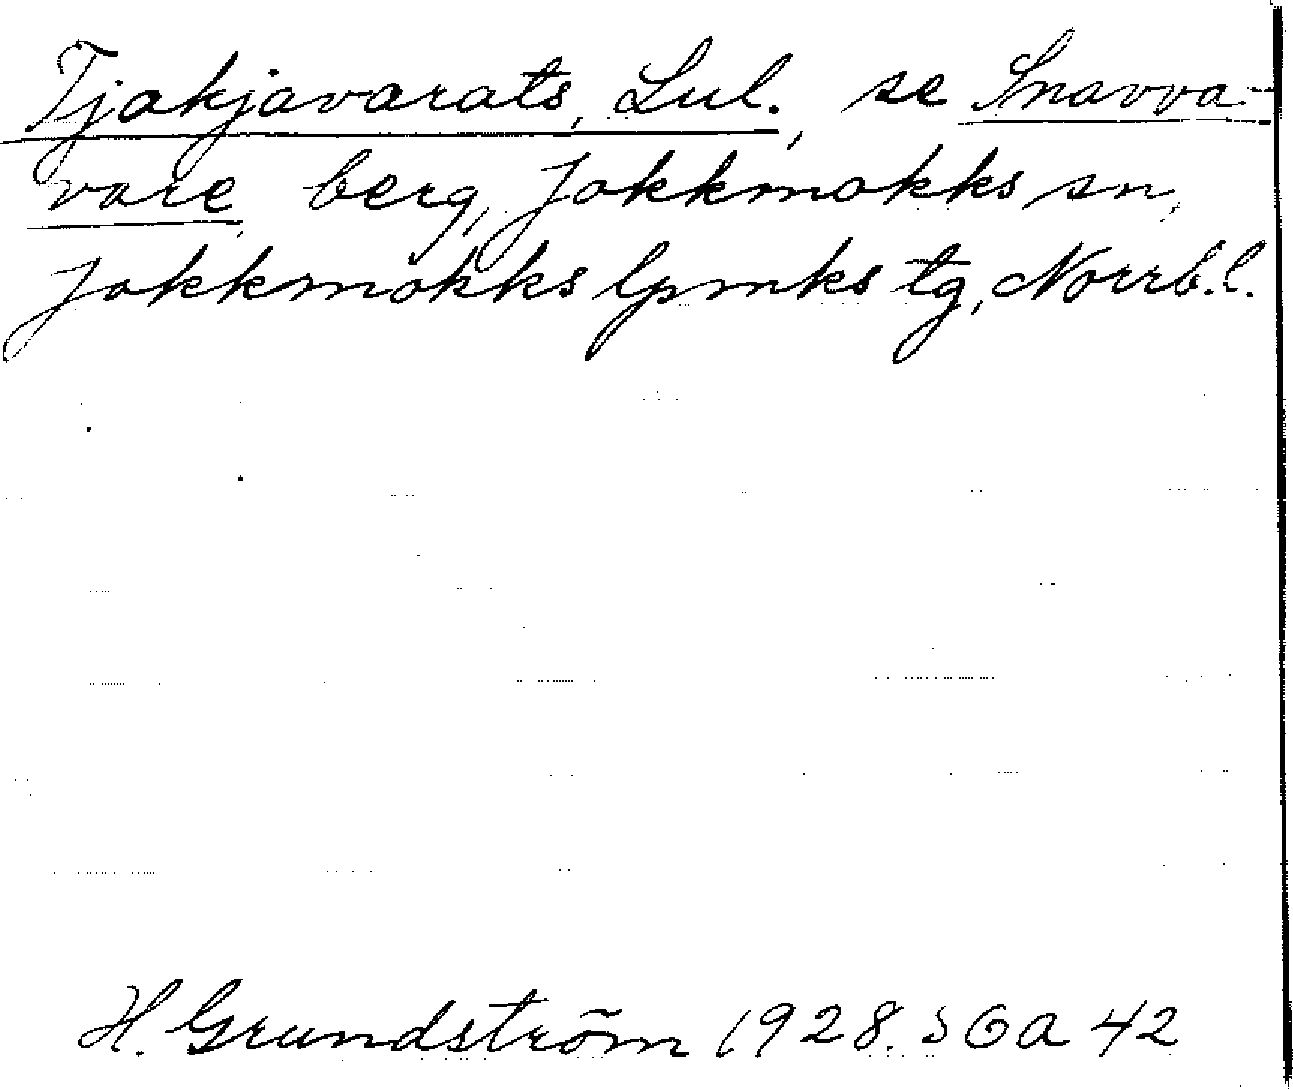 Tjakjavarats, Lul., se Snavva-
vare, berg, Jokkmokks sn,
Jokkmokks lpmks tg, Norrb.l.
H. Grundström 1928. SGA 42